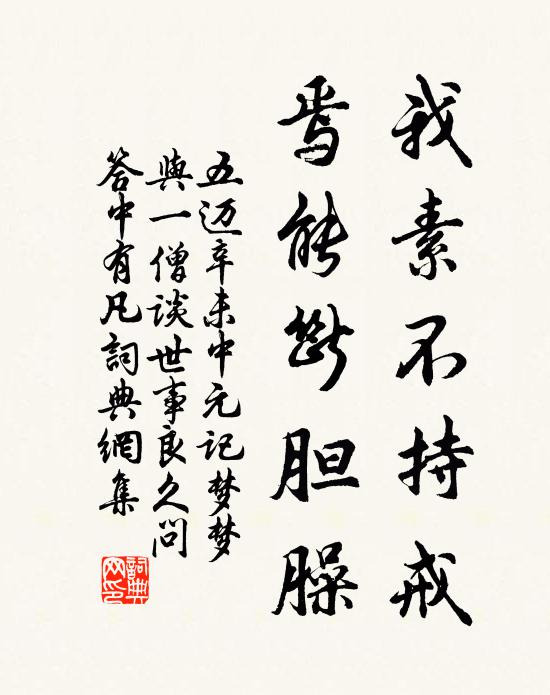 我素不持戒
焉能断胆臊
五迈辛未中元记梦梦
與一僧谈世事良久问
答中有凡詞典網集
詞典
网印